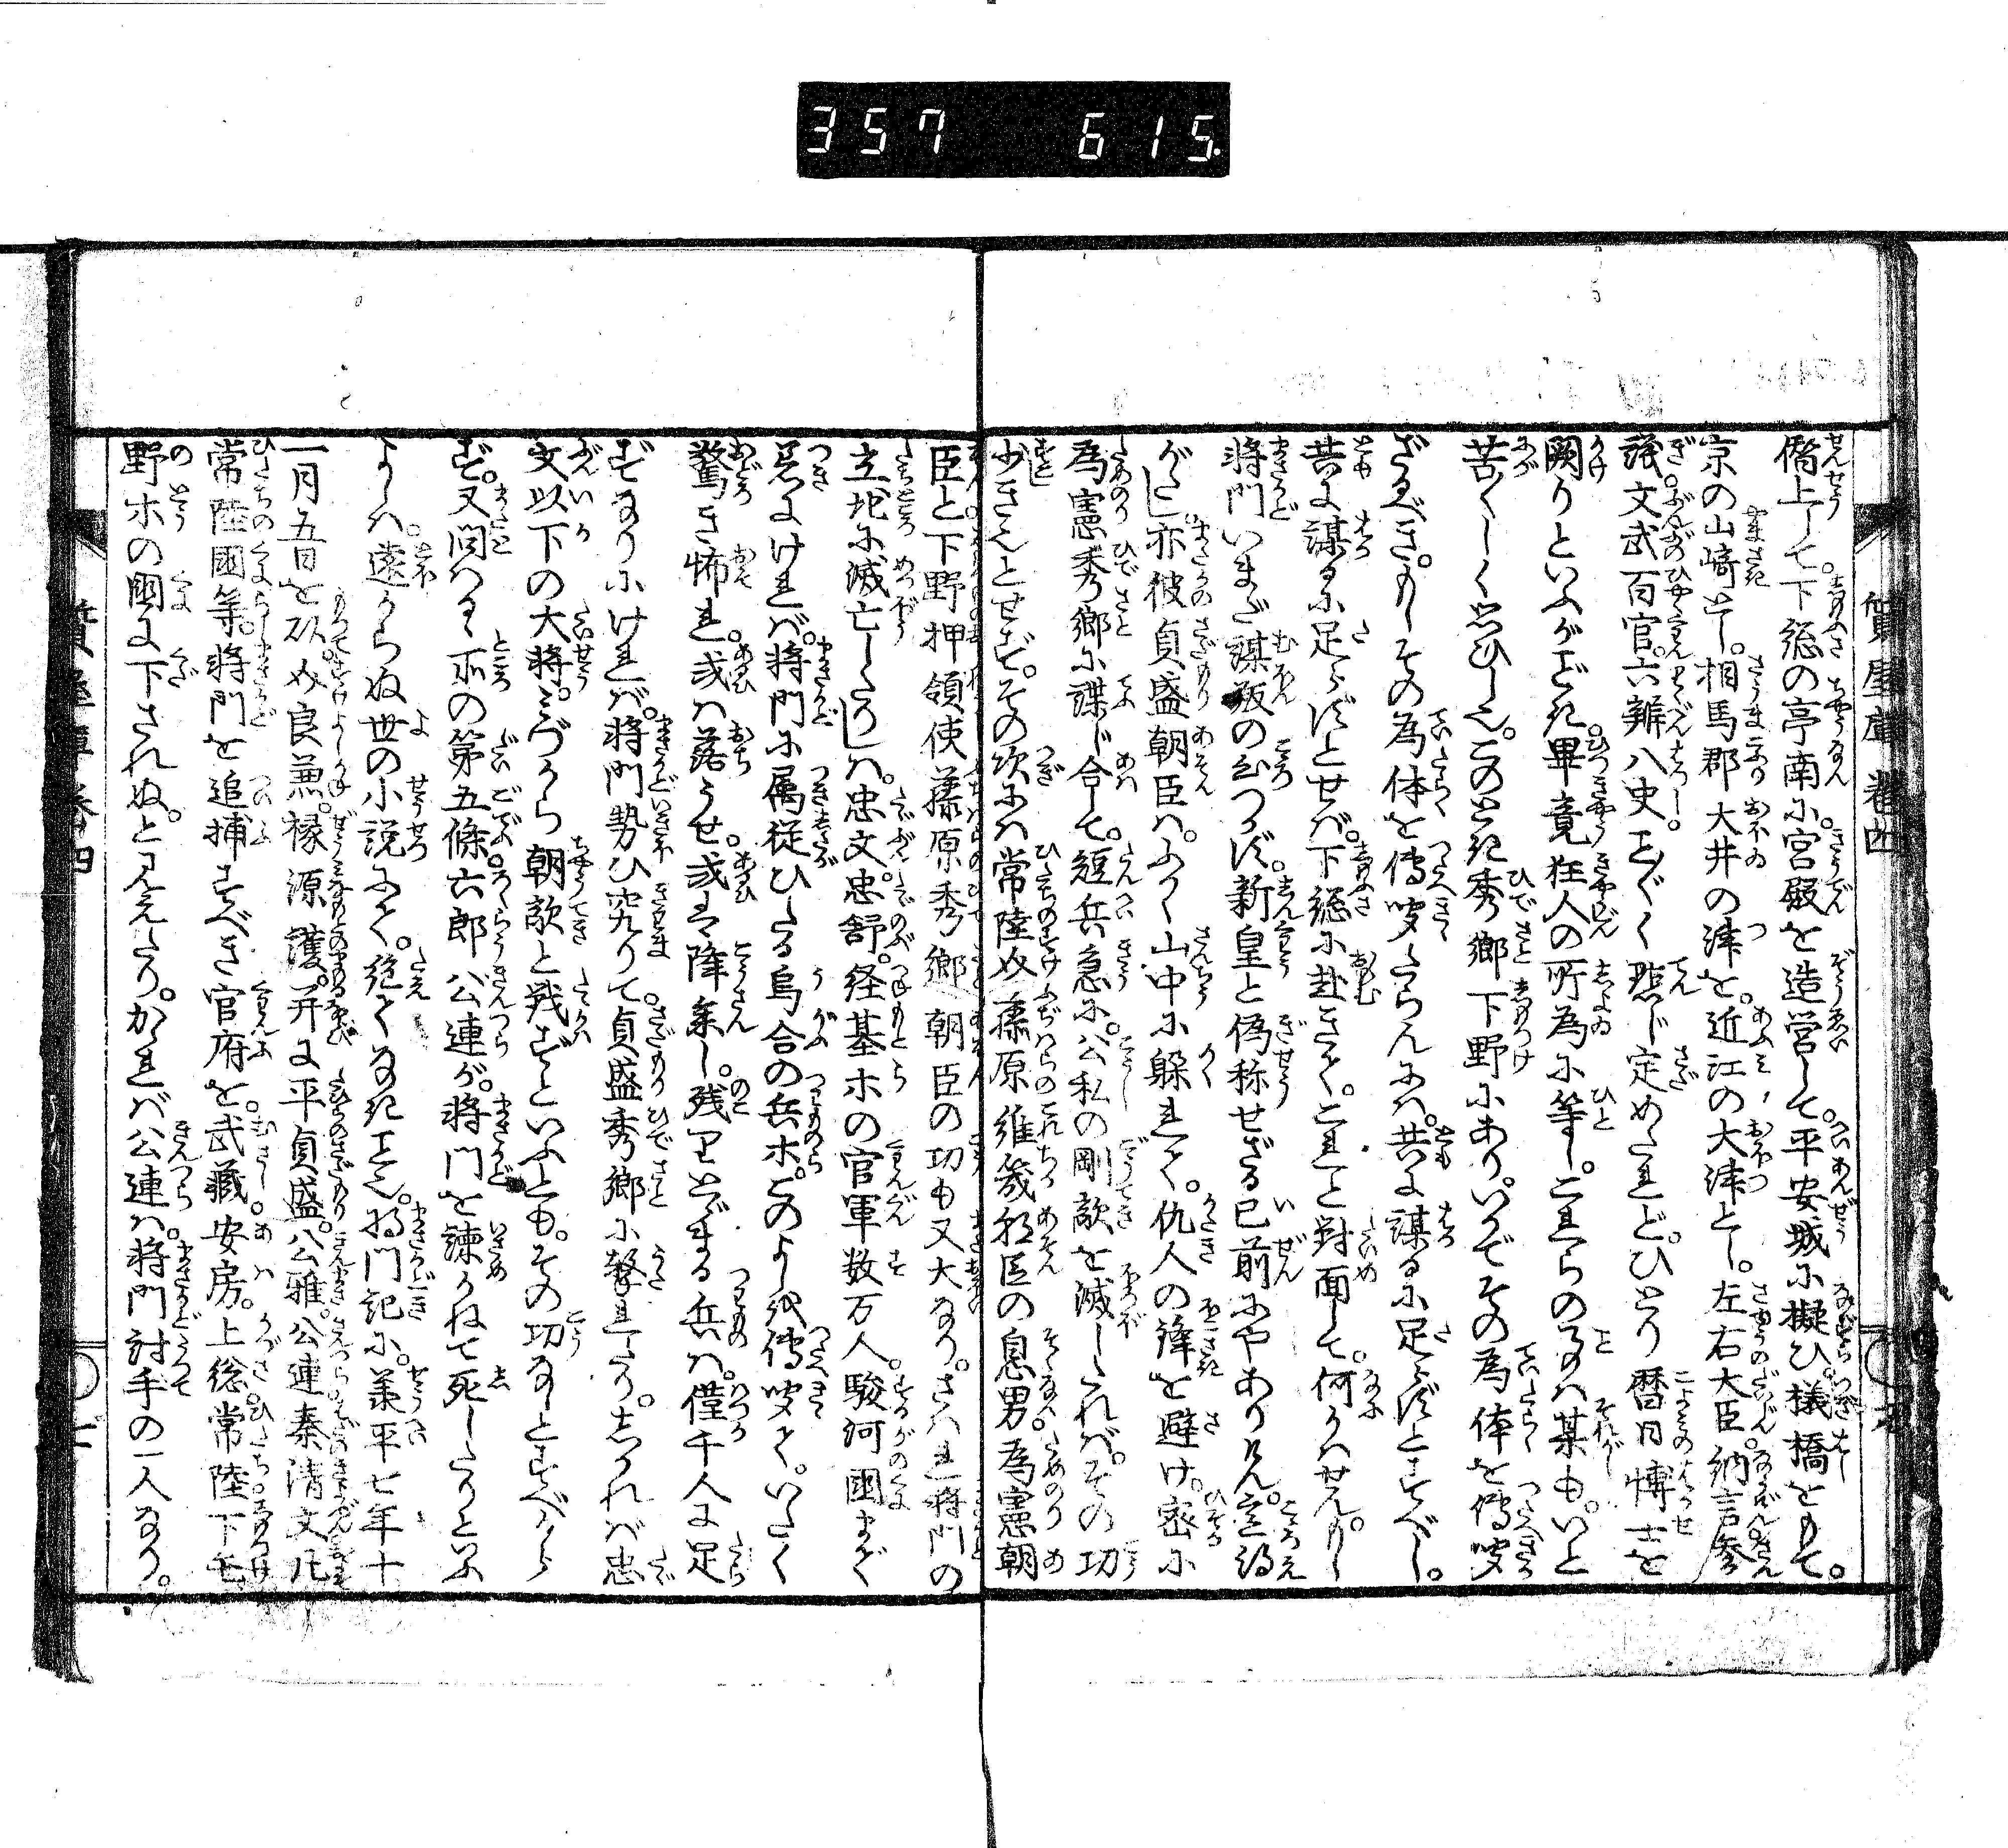 357 615.
質屋庫卷四
僭上して。下総の亭南に宮殿を造営して。平安城に擬ひ。様橋をもて。
京の山﨑とし。相馬郡大井の津を。近江の大津とし。左右大臣。納言参
議。文武百官。六辨八史。こと〴〵く悉じ定めたれど。ひとり暦日博士を
闕りといふがごとき。畢竟狂人の所為に等し。これらのことは某も。いと
苦〳〵しく思ひしこと。このとき秀郷下野にあり。いかでその為体を傳聞
ざるべき。もしその為体を傳聞たらんには。共に謀るに足らずとすべし。
共に謀るに足らずとせば。下総に赴きて。これと對面して。何かはせん。もし
将門いまだ謀叛の色つかず。新皇と偽称せざる已前にやありけん。意得
がたし。亦彼貞盛朝臣は。ふかく山中に躱れて。仇人の鋒を避け。密に
為憲秀郷に諜じ合して。短兵急に。公私の剛敵を滅したれば。その功
少きことせず。その次には常陸介藤原維幾朝臣の息男。為憲朝
臣と下野押領使藤原秀郷朝臣の功も又大なり。されば将門の
立地に滅亡したりしは。忠文。忠舒。経基ホの官軍数万人。駿河國まで
着にければ。将門に属従ひたる烏合の兵ホ。このよし伝聞て。いたく
驚き怖れ。或は落うせ。或は降参し。残りとゞまる兵は。僅千人に足
ずなりにければ。将門勢ひ究りて。貞盛秀郷に撃れたり。しかれば忠
文以下の大将。みづから朝敵と戦ずといふとも。その功なしとすべから
ず。又問はるゝ所の第五條。六郎公連が。将門を諫かねて死したりといふ
よしは。遠からぬ世の小説にて。絶てなきこと。将門記に。承平七年十
一月五日を以。介良兼。掾源護。并に平貞盛。公雅。公連秦清文凡
常陸國等。将門を追捕すべき官府を。武藏。安房。上総。常陸。下毛
野ホの國に下されぬ。と見えたり。かゝれば公連は。将門討手の一人なり。
質屋庫卷四